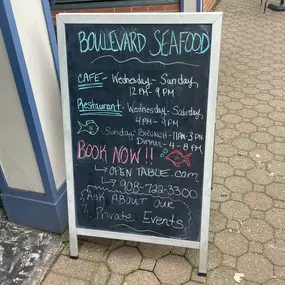 BOULEVARD SEAFOOD
CAFE - Wednesday - Sunday,
12PM - 9PM
Restaurant - Wednesday - Saturday,
4PM - 9PM
Sunday: BRUNCH - 11AM-3PM
Dinner - 4-8PM
BOOK NOW!!
OPEN TABLE.COM
908-722-3300
Ask ABOUT OUR
Private Events